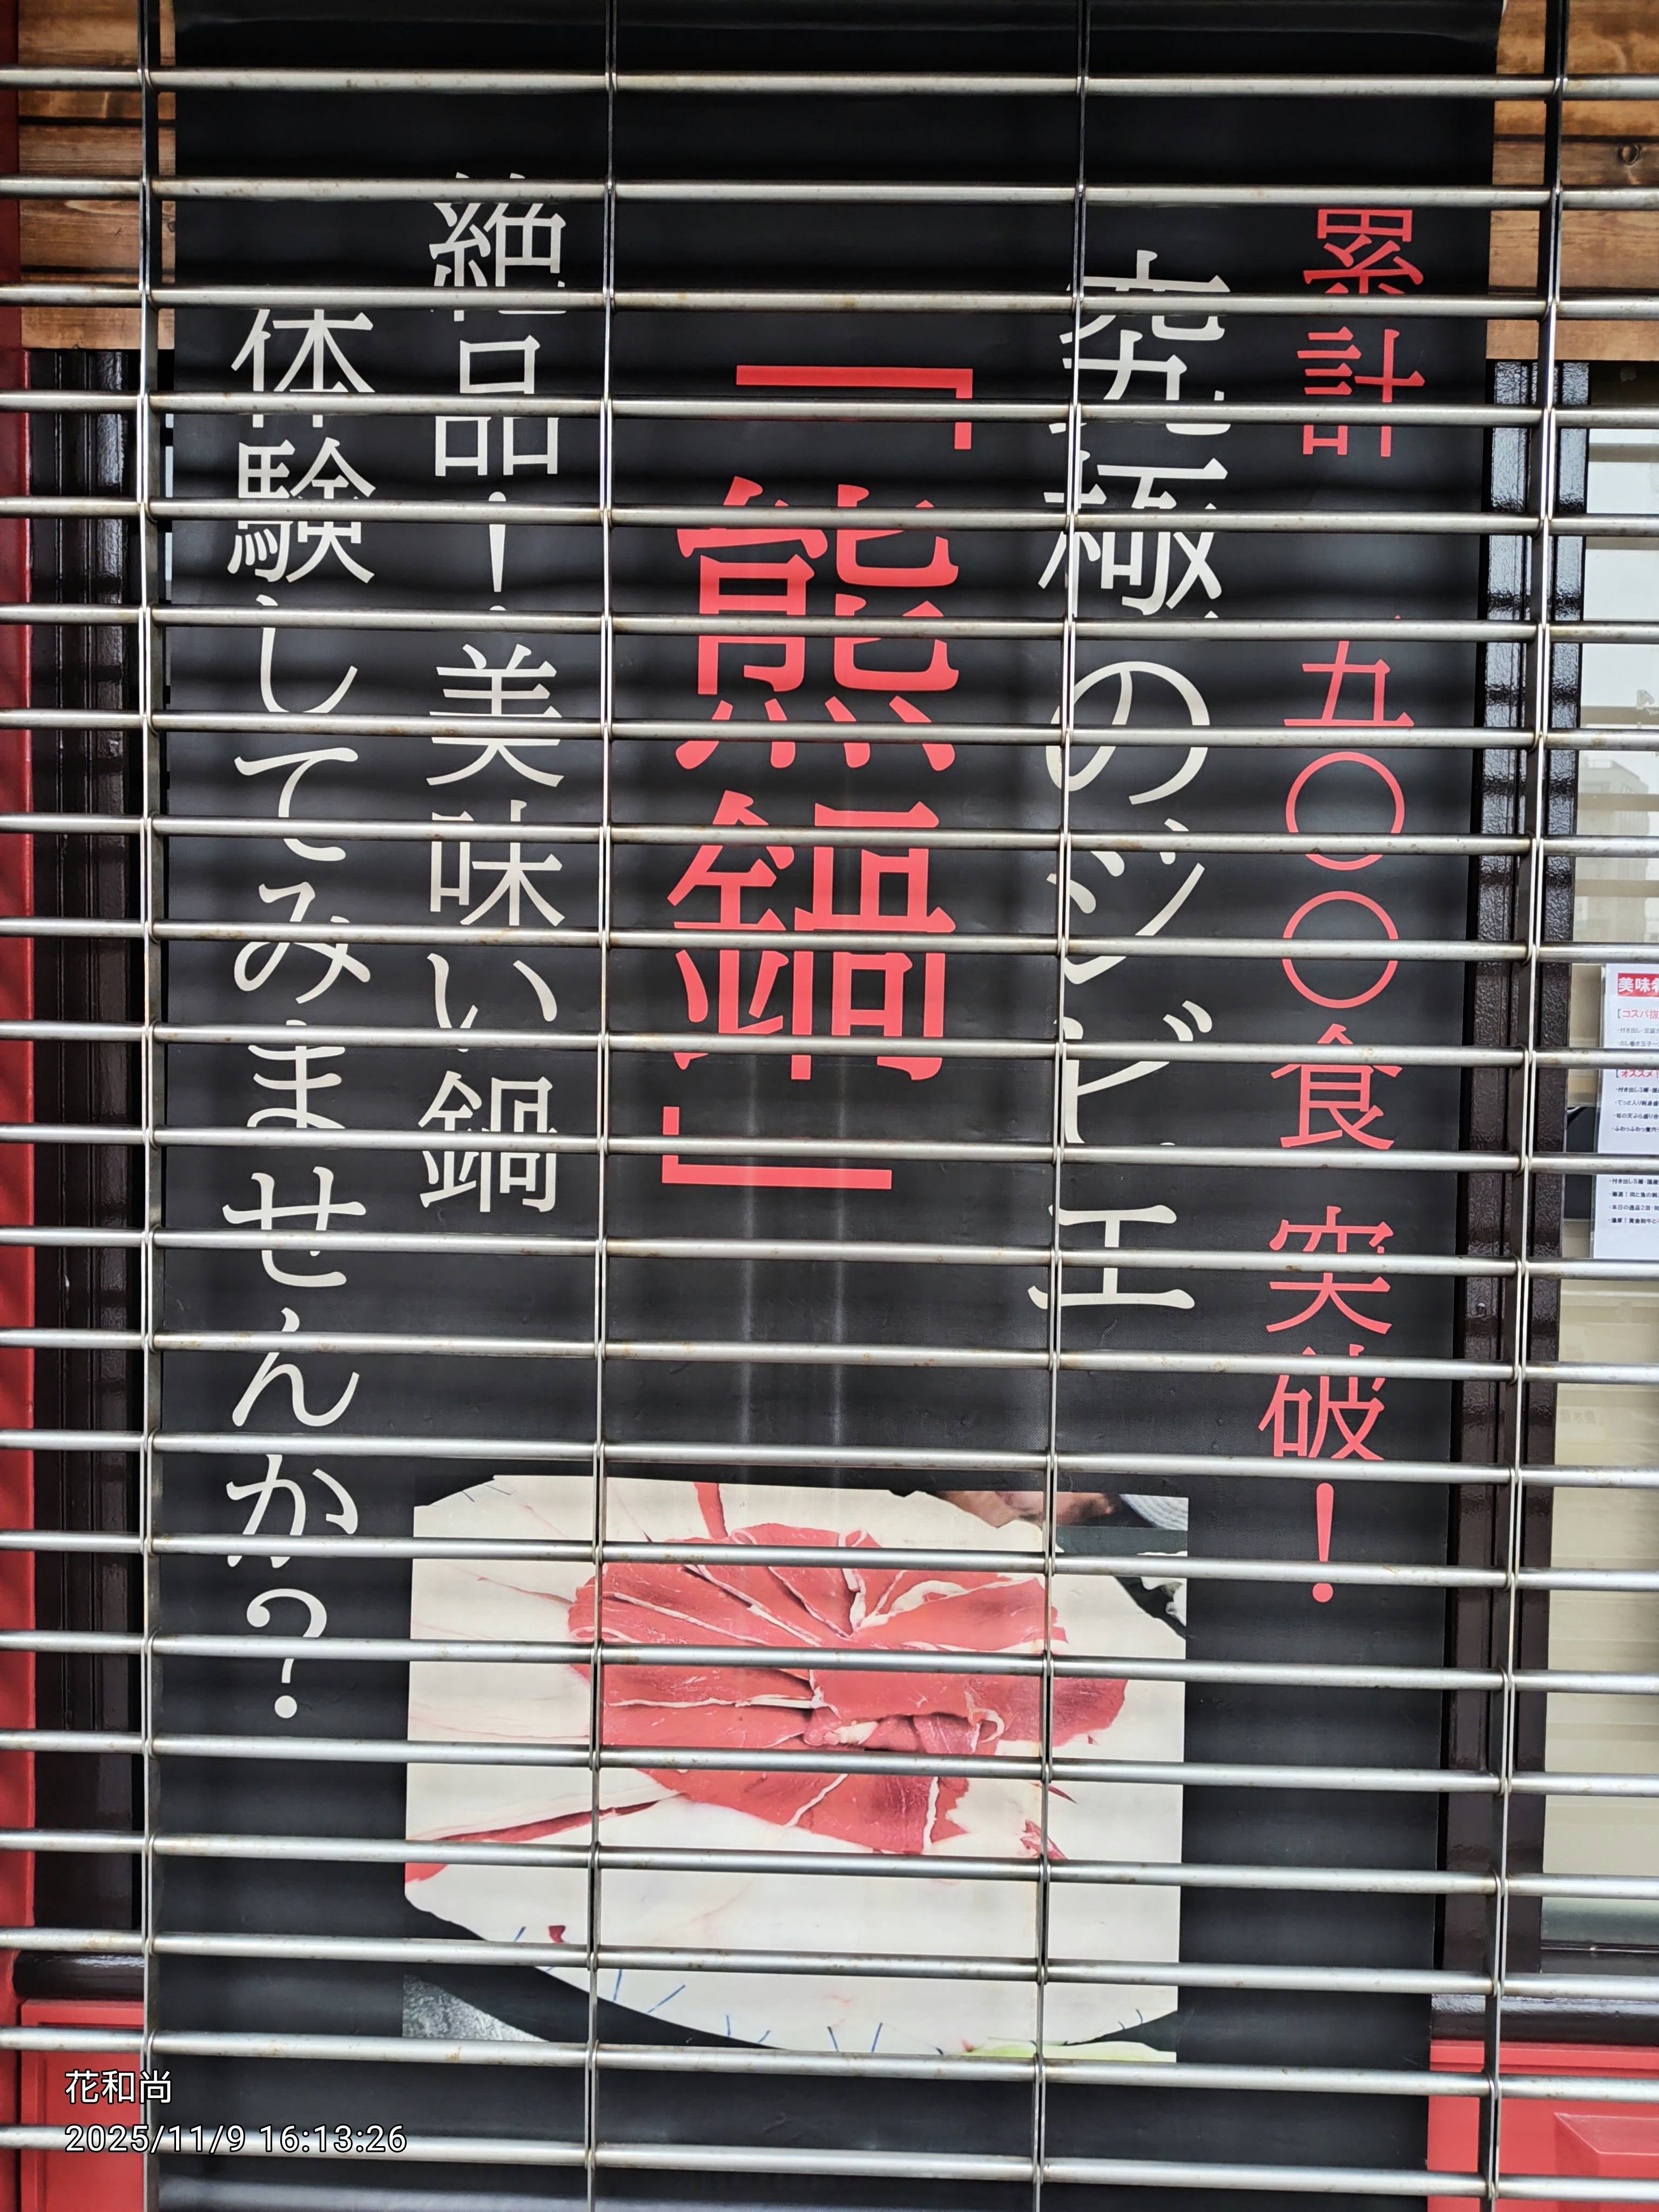 累計 五〇〇食 突破！
究極のジビエ
「熊鍋」
絶品！美味い鍋
体験してみませんか？
美味
【コスパ抜
【オススメ
花和尚
2025/11/9 16:13:26